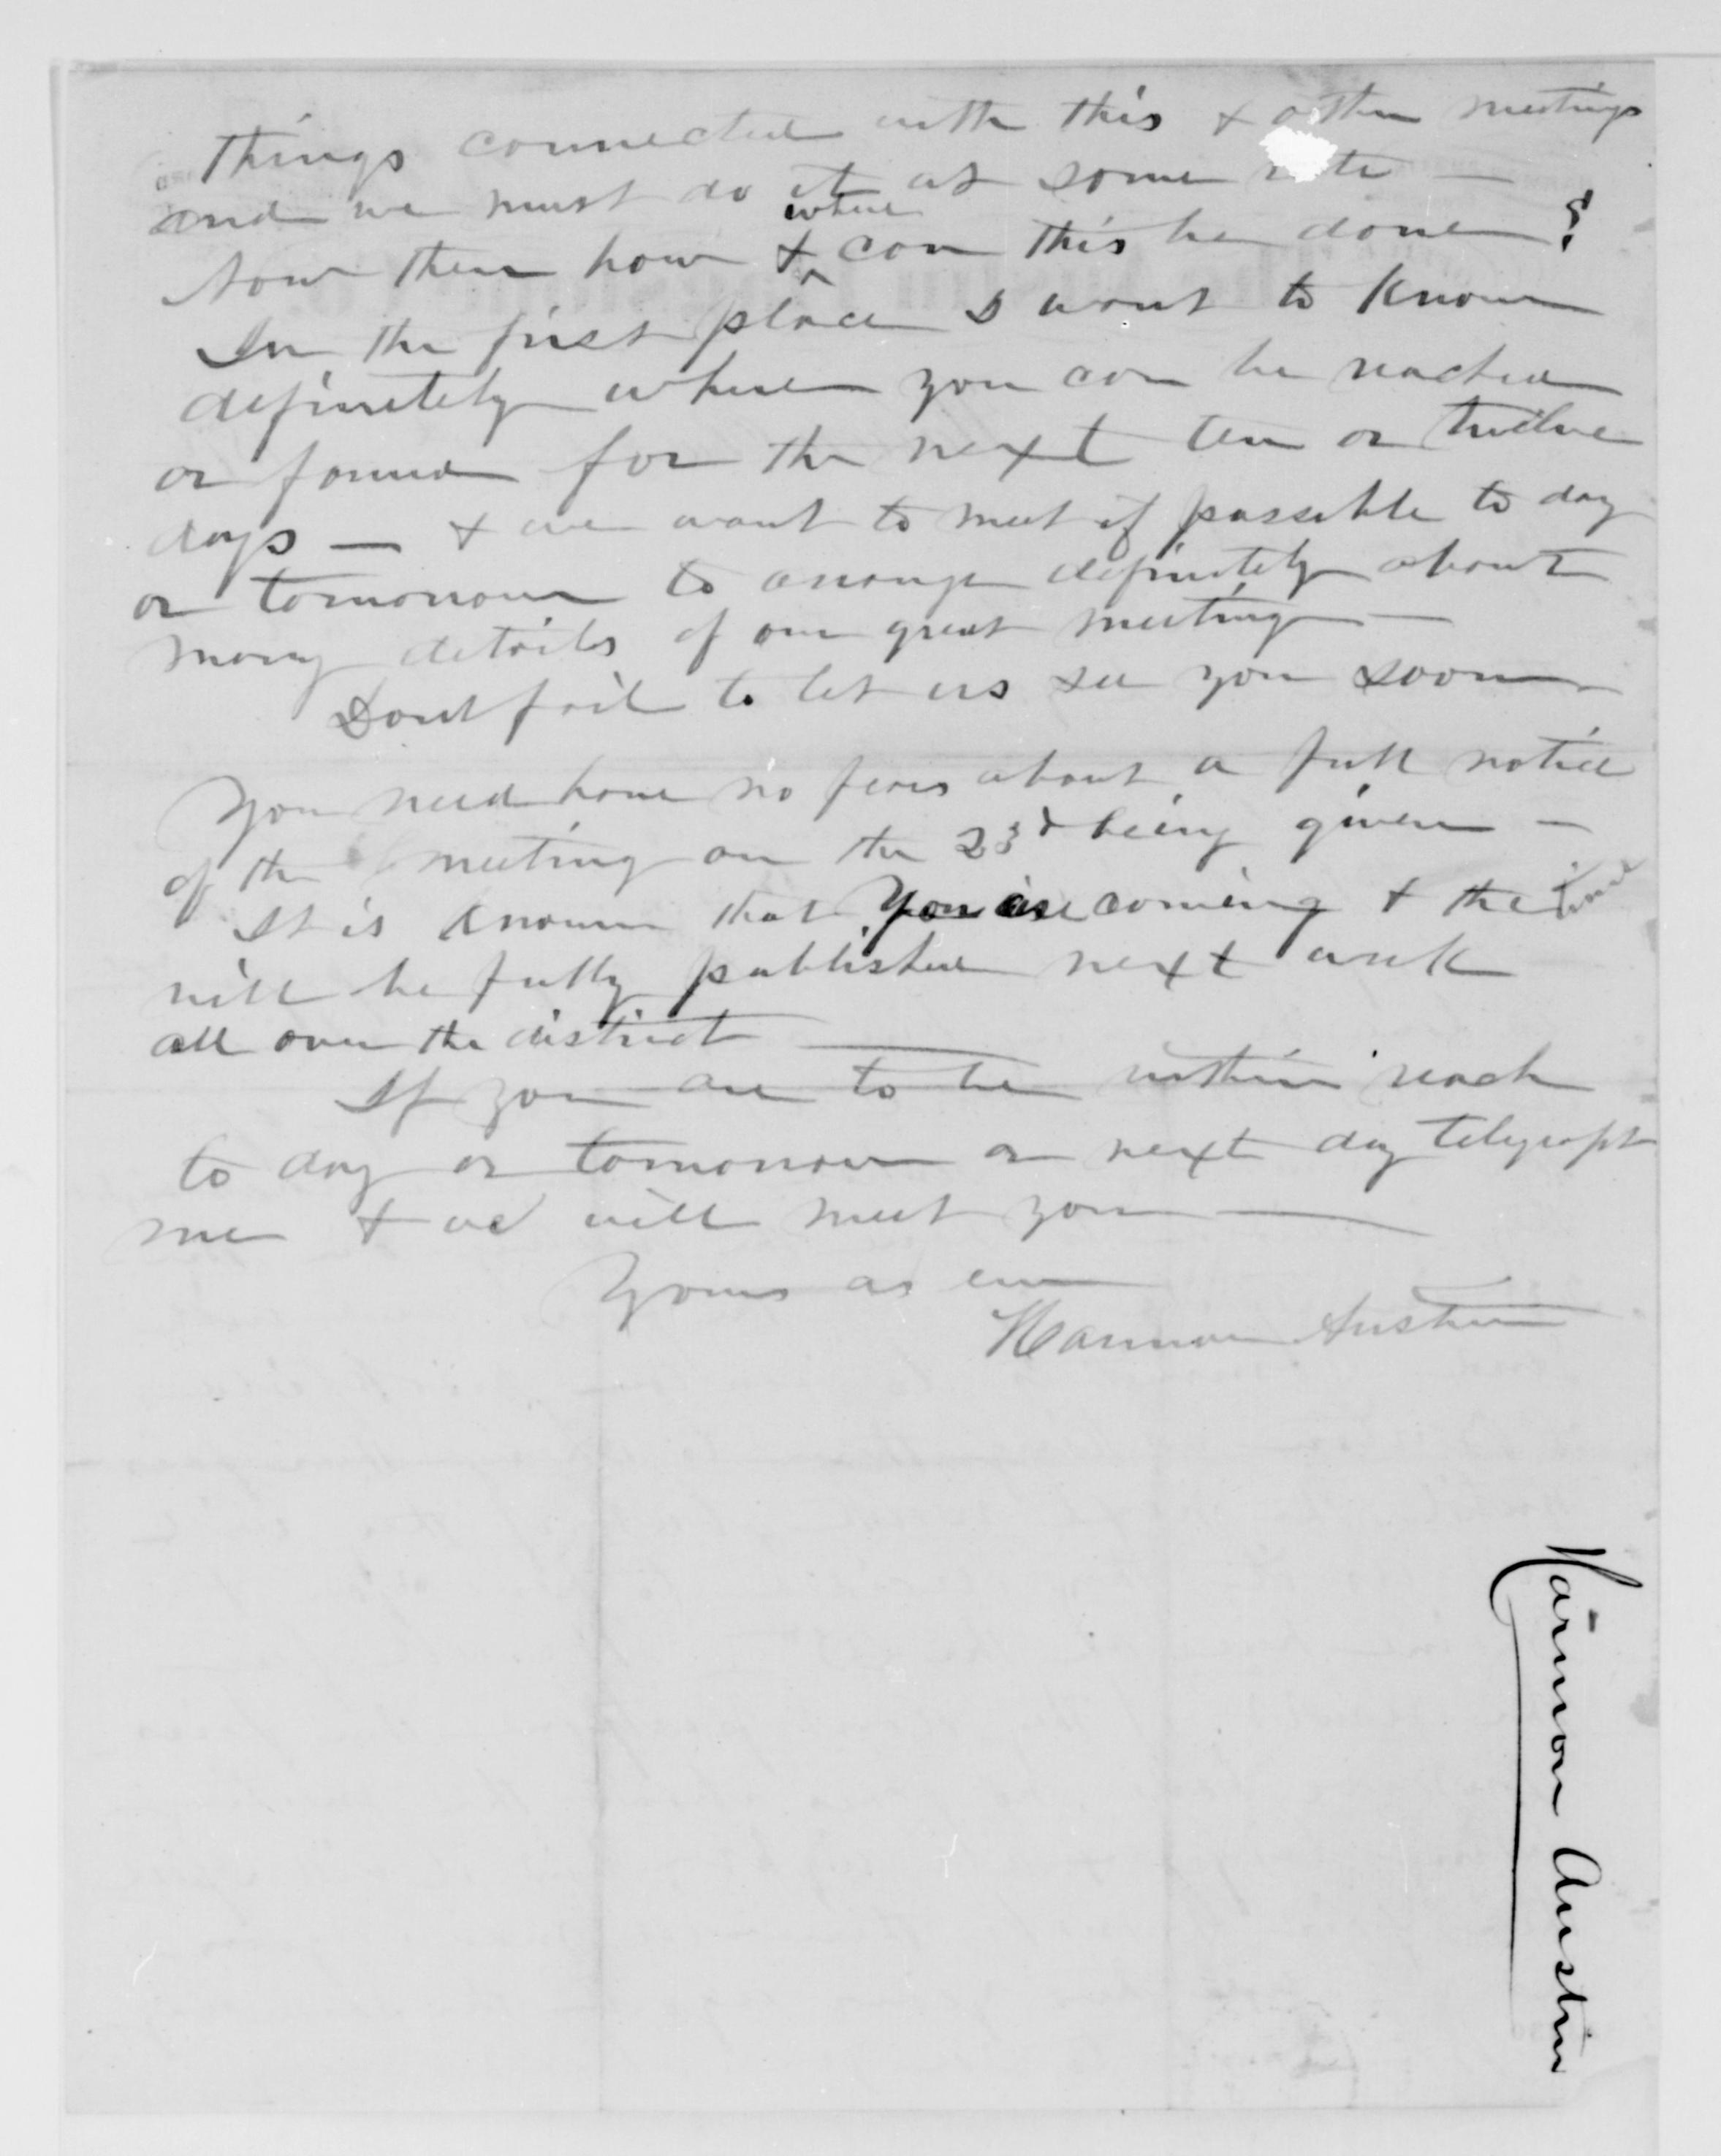 things connected with this & other meetings
and we must do it at some rate —
Now then how & where can this be done?
In the first place I want to know
definitely where you can be reached
or found for the next ten or twelve
days — & we want to meet if possible to day
or tomorrow to arrange definitely about
many details of our great meeting —
Dont fail to let us see you soon
You need have no fears about a full notice
of the meeting on the 23d being given —
It is known that you are coming & the time
will be fully published next week
all over the district —
If you are to be within reach
to day or tomorrow or next day telegraph
me & we will meet you —
Yours as ever
Harmon Austin
Harmon Austin